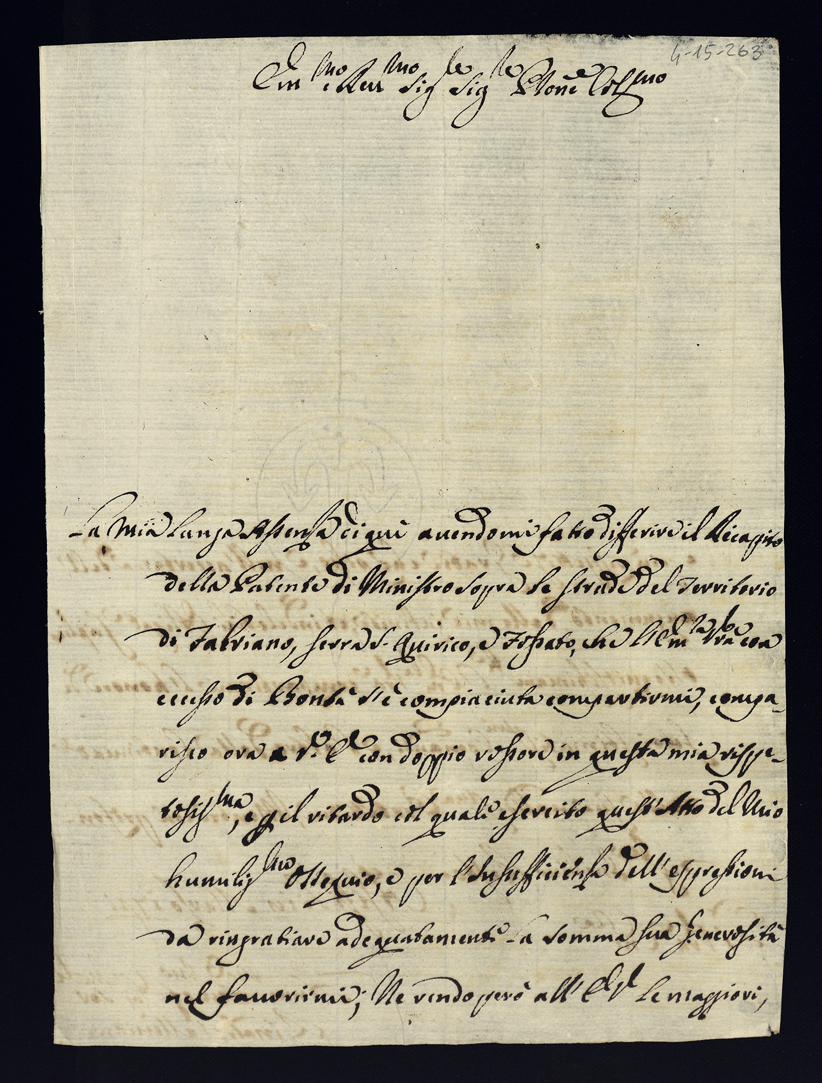 4-15-263
Em.mo e Reu.mo Sig.re Sig.re P.rone Col.mo
La mia lunga Assenza di quì auendomi fatto differire il Recapito
della Patente di Ministro sopra le strade del Territorio
di Fabriano, serra S. Quirico, e Fossato, che l'Em.za V.ra con
eccesso di Bontà s'è compiaciuta compartirmi, compa-
risco ora a V. E. con doppio rossore in questa mia rispe-
tosiss.ma, e p il ritardo col quale esercito quest'Atto del Mio
humiliss.mo Ossequio, e per l'Insufficienza dell'espressioni
da ringratiare adequatamente la somma sua generosità
nel fauorirmi; Ne rendo però all'E.V. le maggiori,